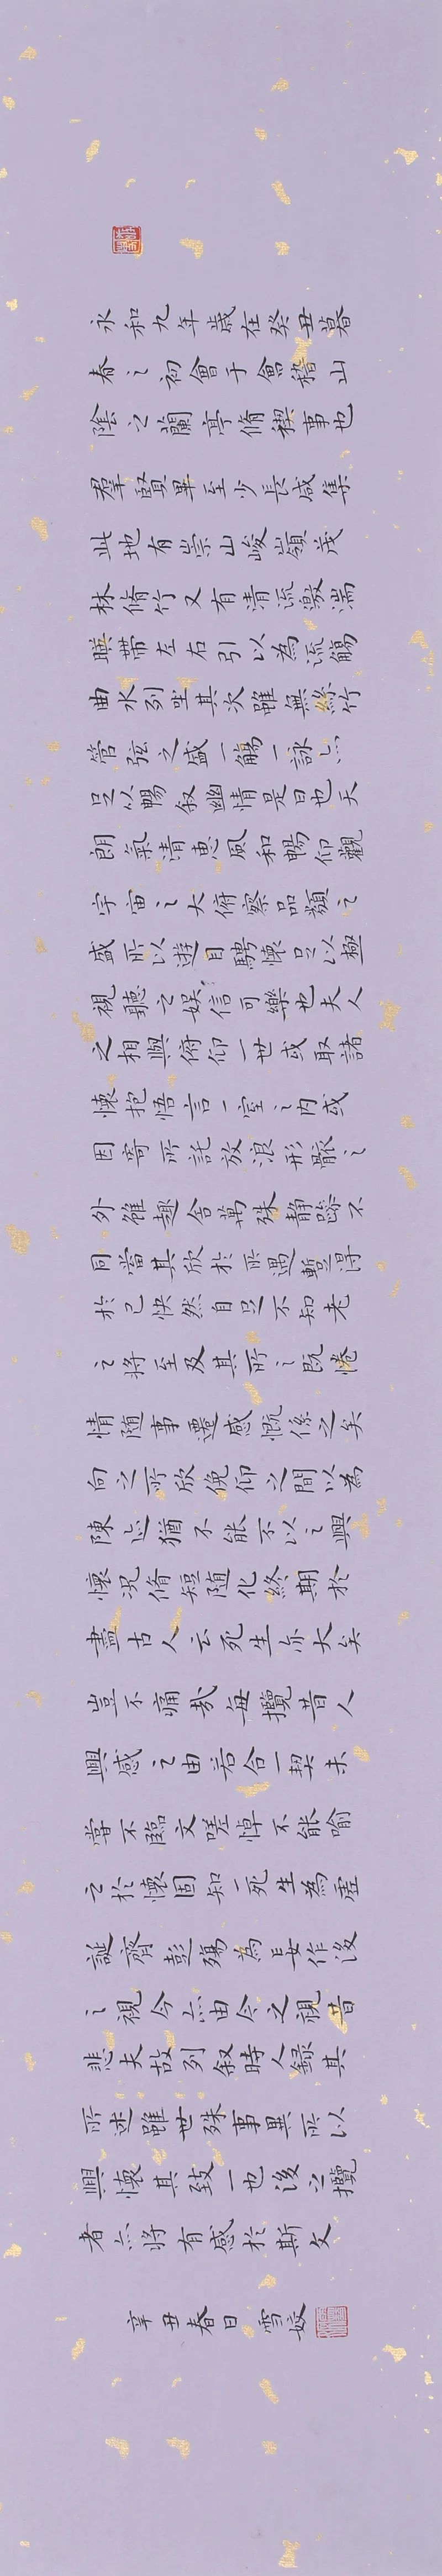 永和九年歲在癸丑暮
春之初會于會稽山
陰之蘭亭脩禊事也
羣賢畢至少長咸集
此地有崇山峻嶺茂
林脩竹又有清流激湍
暎帶左右引以為流觴
曲水列坐其次雖無絲竹
管弦之盛一觴一詠亦
足以暢敘幽情是日也天
朗氣清惠風和暢仰觀
宇宙之大俯察品類之
盛所以遊目騁懷足以極
視聽之娛信可樂也夫人
之相與俯仰一世或取諸
懷抱悟言一室之內或
因寄所託放浪形骸之
外雖趣舍萬殊靜躁不
同當其欣於所遇暫得
於己快然自足不知老
之將至及其所之既惓
情隨事遷感慨係之矣
向之所欣俛仰之間以為
陳迹猶不能不以之興
懷況脩短隨化終期於
盡古人云死生亦大矣
豈不痛哉每攬昔人
興感之由若合一契未
嘗不臨文嗟悼不能喻
之於懷固知一死生為虛
誕齊彭殤為妄作後
之視今亦由今之視昔
悲夫故列敘時人錄其
所述雖世殊事異所以
興懷其致一也後之攬
者亦將有感於斯文
辛丑春日 雪姣